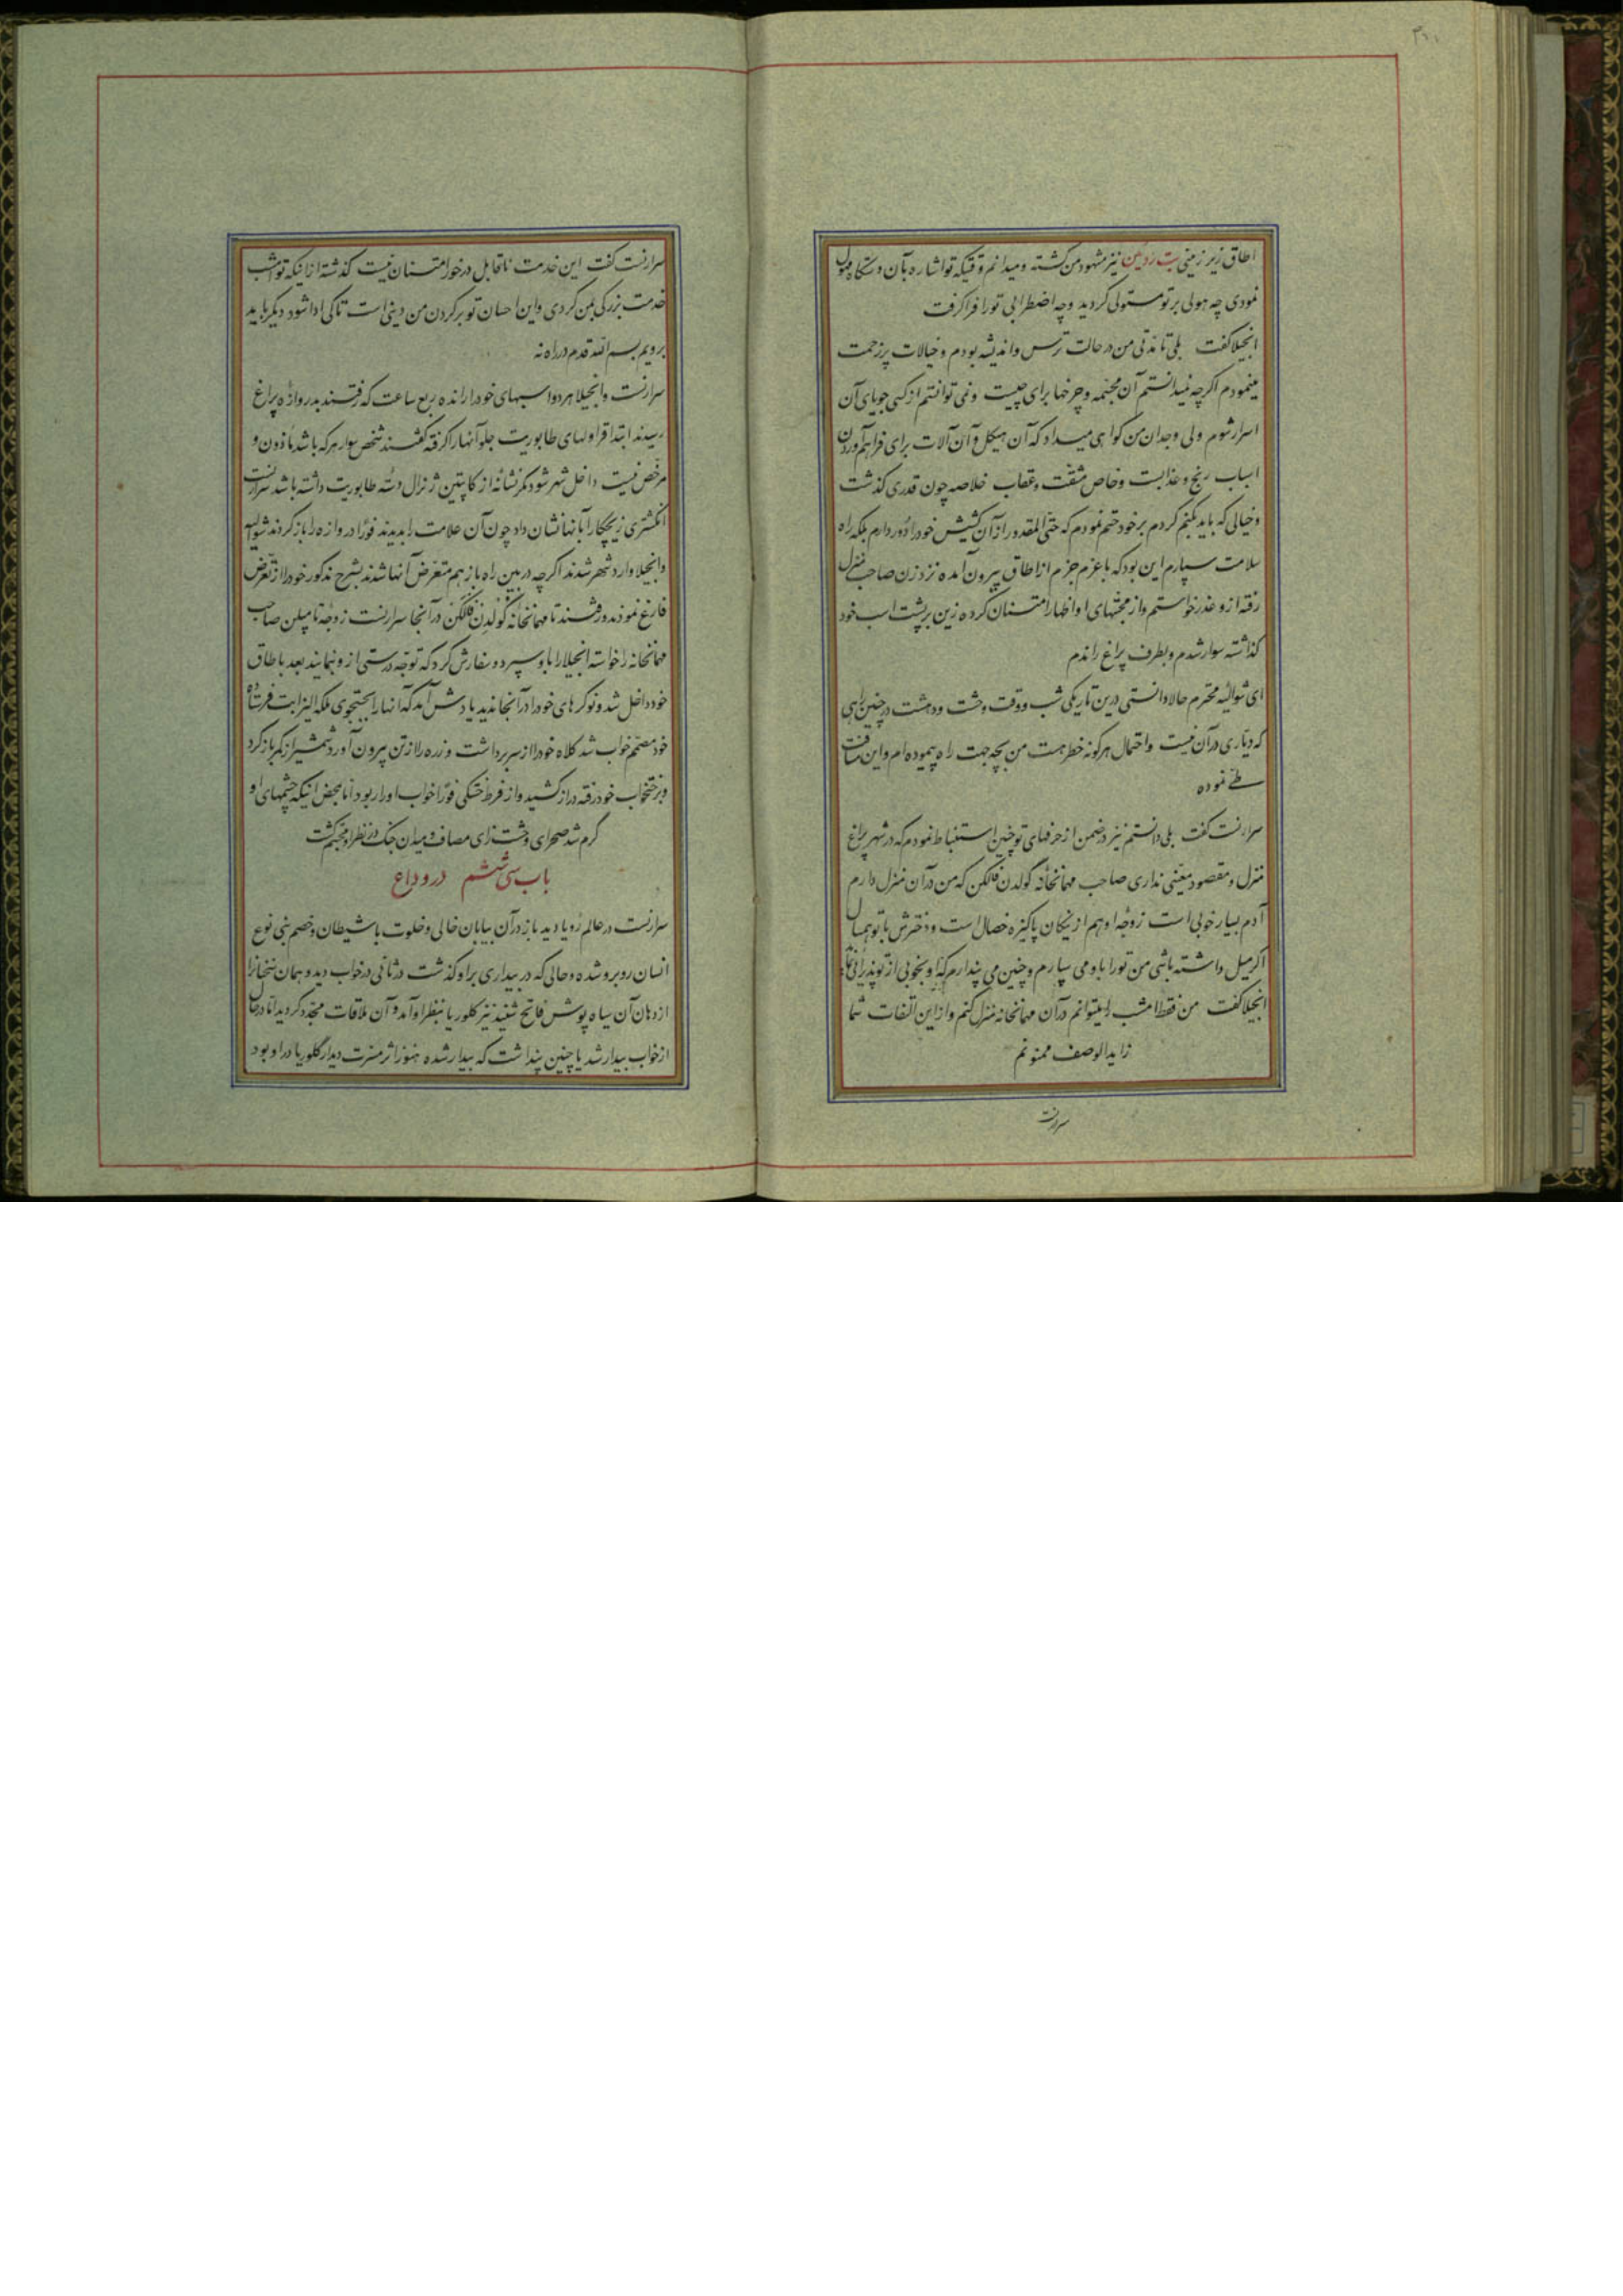 ۳۱۰
اطاق زیر زمینی بت زرین نیز مشهود من گشته و میدانم وقتیکه تو اشاره بآن دستگاه مهول
نمودی چه هولی بر تو مستولی گردید و چه اضطرابی تو را فرا گرفت
انجیلا گفت بلی تا مدتی من در حالت ترس و اندیشه بودم و خیالات پرزحمت
مینمودم اگرچه نمیدانستم آن مجسمه و چرخها برای چیست و نمی توانستم از کسی جویای آن
اسرار شوم ولی وجدان من گواهی میداد که آن هیکل و آن آلات برای فراهم آوردن
اسباب رنج و عذابست و خاص مشقت و عقاب خلاصه چون قدری گذشت
و خیالی که باید بکنم کردم بر خود حتم نمودم که حتی المقدور از آن کشیش خود را دور دارم بلکه راه
سلامت سپارم این بود که با عزم جزم از اطاق بیرون آمده نزد زن صاحب منزل
رفته از و عذر خواستم و از محبتهای او اظهار امتنان کرده زین بر پشت اسب خود
گذاشته سوار شدم و بطرف پراغ راندم
ای شوالیه محترم حالا دانستی درین تاریکی شب و وقت وحشت و دهشت در چنین راهی
که دیاری در آن نیست و احتمال هر گونه خطر هست من بچه جهت راه پیموده ام و این مسافت
طی نموده
سرارنست گفت بلی دانستم نیز در ضمن از حرفهای تو چنین استنباط نمودم که در شهر پراغ
منزل و مقصود معینی نداری صاحب مهمانخانه گولدن فالکن که من در آن منزل دارم
آدم بسیار خوبی است زوجه او هم از نیکان پاکیزه خصال است و دخترش با تو همسال
اگر میل داشته باشی من تو را باو می سپارم و چنین می پندارم که او بخوبی از تو پذیرائی نماید
انجیلا گفت من فقط امشب را میتوانم در آن مهمانخانه منزل کنم و از این التفات شما
زاید الوصف ممنونم
سرارنست
سرارنست گفت این خدمت ناقابل در خور امتنان نیست گذشته از اینکه تو امشب
خدمت بزرگی بمن کردی و این احسان تو بر گردن من دینی است تا کی ادا شود دیگر باید
برویم بسم الله قدم در راه نه
سرارنست و انجیلا هر دو اسبهای خود را رانده ربع ساعت که رفتند بدروازه پراغ
رسیدند ابتدا قراولهای طابوریت جلو آنها را گرفته گفتند شخص سوار هر که باشد مأذون و
مرخص نیست داخل شهر شود مگر نشانه از کاپیتن ژنرال دسته طابوریت داشته باشد سرارنست
انگشتری زیچکا را بآنها نشان داد چون آن علامت را بدیدند فورا دروازه را باز کردند شوالیه
و انجیلا وارد شهر شدند اگرچه در بین راه باز هم متعرض آنها شدند بشرح مذکور خود را از تعرض
فارغ نمودند و رفتند تا مهمانخانه گولدن فالکن در آنجا سرارنست زوجه تامپلن صاحب
مهمانخانه را خواسته انجیلا را باو سپرد و سفارش کرد که توجه درستی از و بنمایند بعد باطاق
خود داخل شد و نوکرهای خود را در آنجا ندید یادش آمد که آنها را بجستجوی ملکه الیزابت فرستاده
خود مصمم خواب شد کلاه خود را از سر برداشت و زره را از تن بیرون آورد شمشیر از کمر باز کرد
و برختخواب خود رفته دراز کشید و از فرط خستگی فورا خواب او را ربود اما بمحض اینکه چشمهای او
گرم شد صحرای وحشت زای مصاف و میدان جنگ در نظر او مجسم گشت
باب سی ششم در وداع
سرارنست در عالم رویا دید باز در آن بیابان خالی و خلوت با شیطان و خصم بنی نوع
انسان روبرو شده و حالی که در بیداری بر او گذشت در ثانی در خواب دید و همان سخنان را
از دهان آن سیاه پوش فاتح شنید نیز گلوریا بنظر او آمد و آن ملاقات مجدد گردید اما در حال
از خواب بیدار شد یا چنین پنداشت که بیدار شده هنوز اثر مسرت دیدار گلوریا در او بود